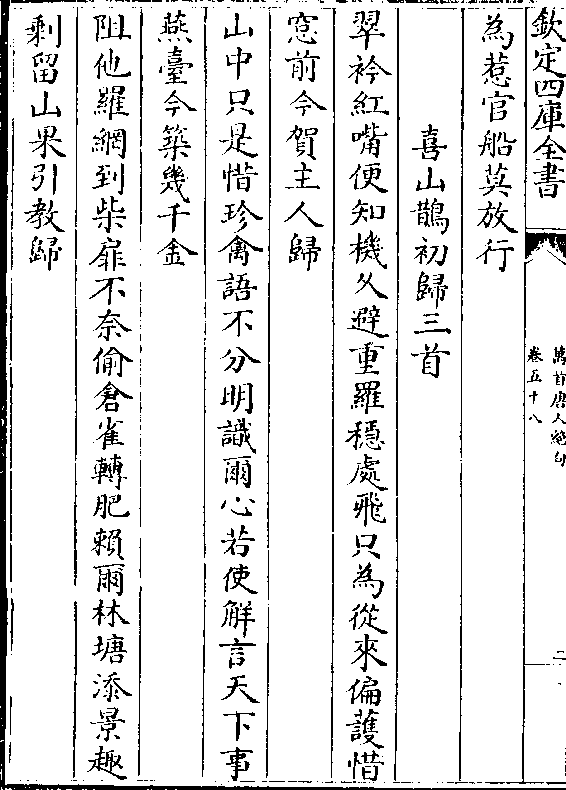 欽定四庫全書
萬首唐人絶句
卷五十八
二
為惹官船莫放行
喜山鵲初歸三首
翠衿紅嘴便知機久避重羅穩處飛只為從來偏護惜
窓前今賀主人歸
山中只是惜珍禽語不分明識爾心若使解言天下事
燕臺今築幾千金
阻他羅網到柴扉不奈偷倉雀轉肥賴爾林塘添景趣
剩留山果引教歸